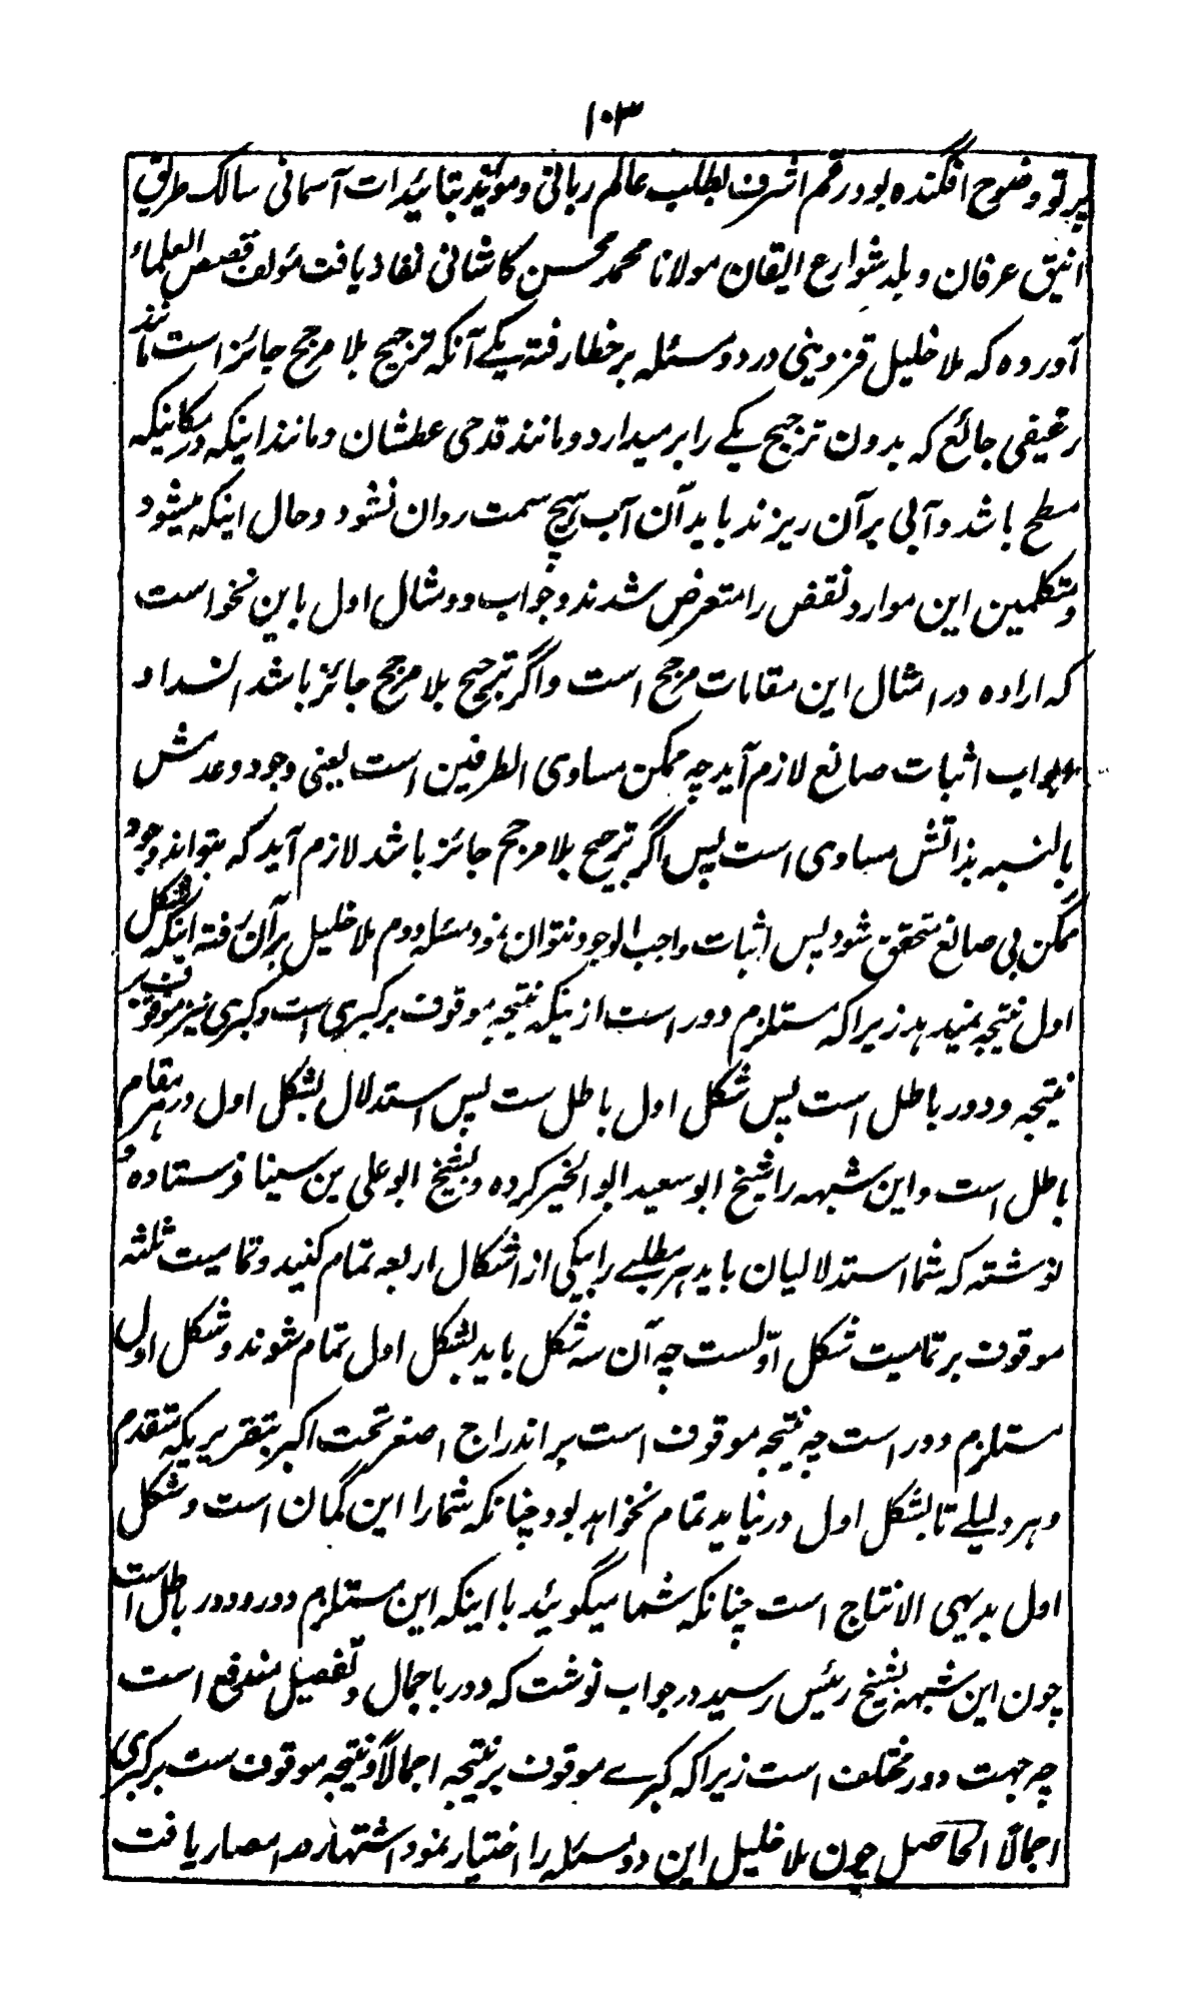 ۱۰۳
پرتو وضوح افگنده بود رقم اشرف بطلب عالم ربانی و مؤید بتائیدات آسمانی سالک طریق
انیق عرفان و بلد شوارع ایقان مولانا محمد محسن کاشانی نفاذ یافت مؤلف قصص العلماء
آورده که ملا خلیل قزوینی در دو مسئله بر خطا رفته یکے آنکه ترجیح بلا مرجح جائز است مانند
رغیفی جائع که بدون ترجیح یکے را برمیدارد و مانند قدحی عطشان و مانند اینکه در مکانیکه
مسطح باشد و آبی بر آن ریزند باید آن آب بهیچ سمت روان نشود و حال اینکه میشود
و متکلمین این موارد نقض را متعرض شدند و جواب دو مثال اول باین نحو است
که اراده در امثال این مقامات مرجح است و اگر ترجیح بلا مرجح جائز باشد انسداد
ابواب اثبات صانع لازم آید چه ممکن مساوی الطرفین است یعنی وجود و عدمش
بالنسبه بذاتش مساوی است پس اگر ترجیح بلا مرجح جائز باشد لازم آید که بتواند وجود
ممکن بی صانع متحقق شود پس اثبات واجب الوجود نتوان نمود مسئله دوم ملا خلیل بر آن رفته اینکه شکل
اول نتیجه نمیدهد زیرا که مستلزم دور است از ینکه نتیجه موقوف بر کبری است و کبری نیز موقوف بر
نتیجه و دور باطل است پس شکل اول باطل ست پس استدلال بشکل اول در هر مقام
باطل است و این شبهه را شیخ ابو سعید ابو الخیر کرده و بشیخ ابو علی بن سینا فرستاده و
نوشته که شما استدلالیان باید هر مطلبے را بیکی از اشکال اربعه تمام کنید و تمامیت ثلثه
موقوف بر تمامیت شکل اوّلست چه آن سه شکل باید بشکل اول تمام شوند و شکل اول
مستلزم دور است چه نتیجه موقوف است بر اندراج اصغر تحت اکبر بتقریریکه متقدم
و هر دلیلے تا بشکل اول در نیاید تمام نخواهد بود چنانکه شما را این گمان است و شکل
اول بدیهی الانتاج است چنانکه شما میگوئید با اینکه این مستلزم دور و دور باطل است
چون این شبهه بشیخ رئیس رسید در جواب نوشت که دور باجمال و تفصیل مندفع است
چه جهت دور مختلف است زیرا که کبرے موقوف بر نتیجه اجمالاً و نتیجه موقوف ست بر کبری
اجمالاً الحاصل چون ملا خلیل این دو مسئله را اختیار نمود اشتهار در امصار یافت